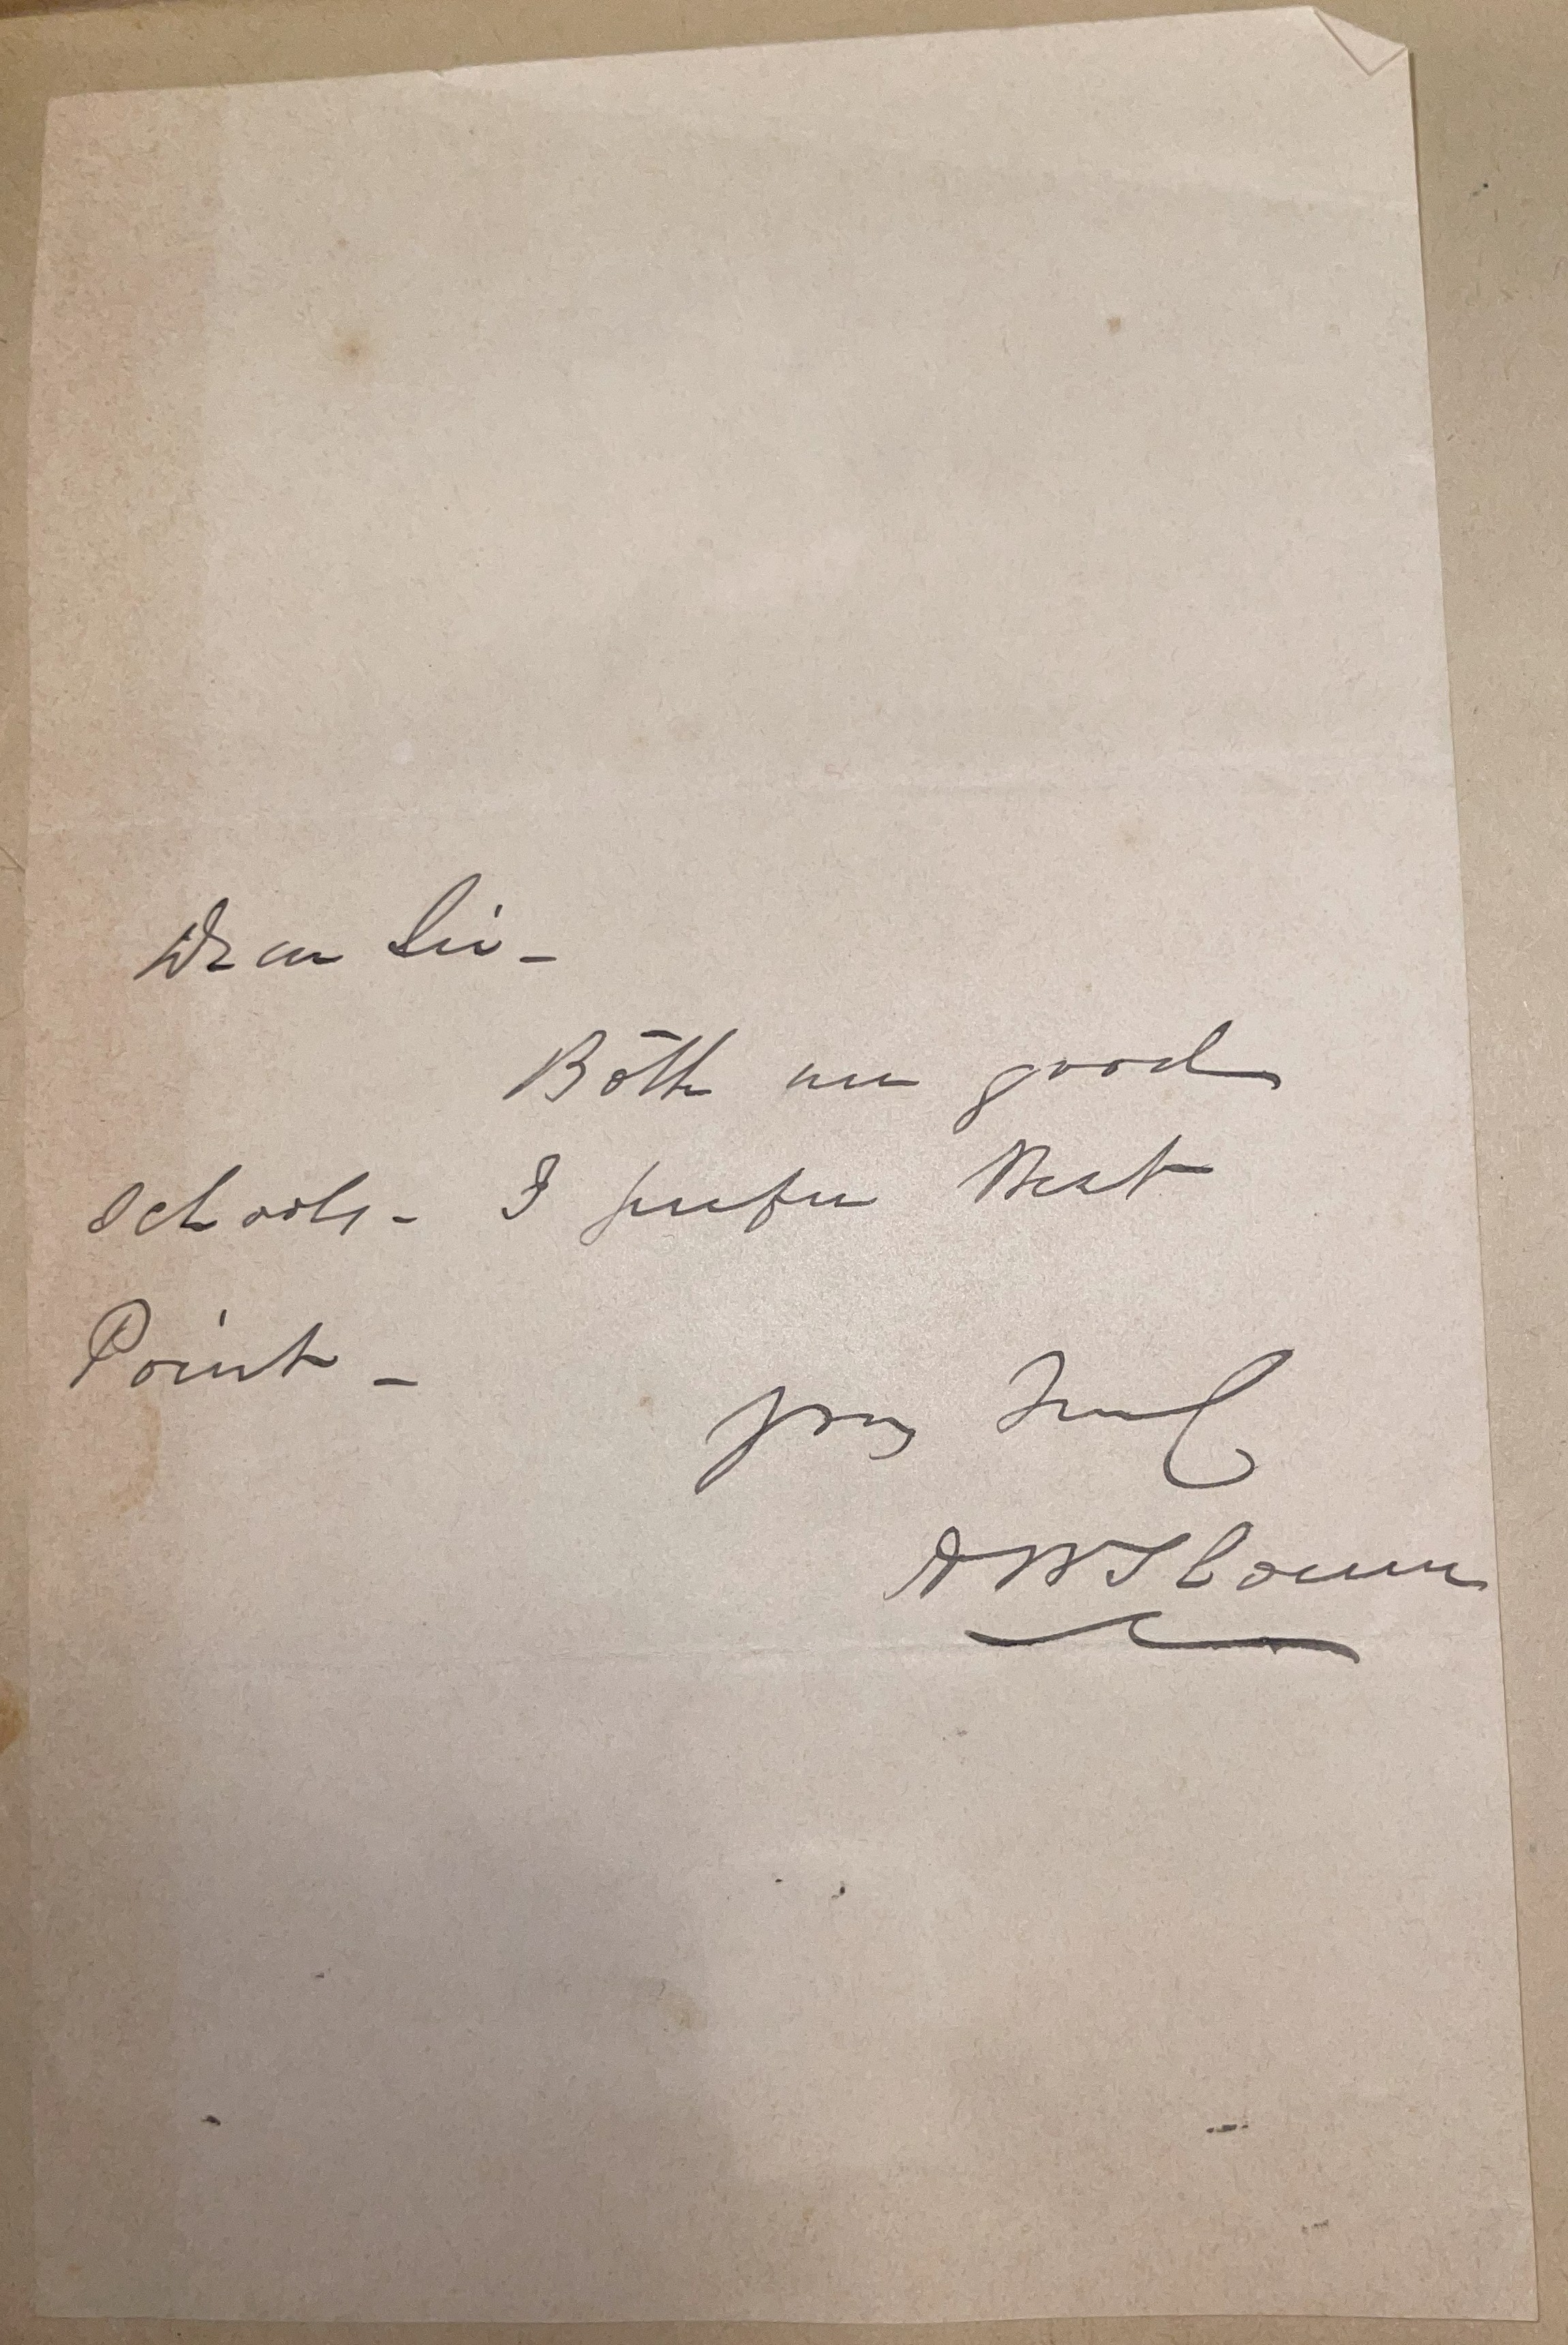 Dear Sir -
Both are good
schools - I prefer West
Point -
Yours Truly